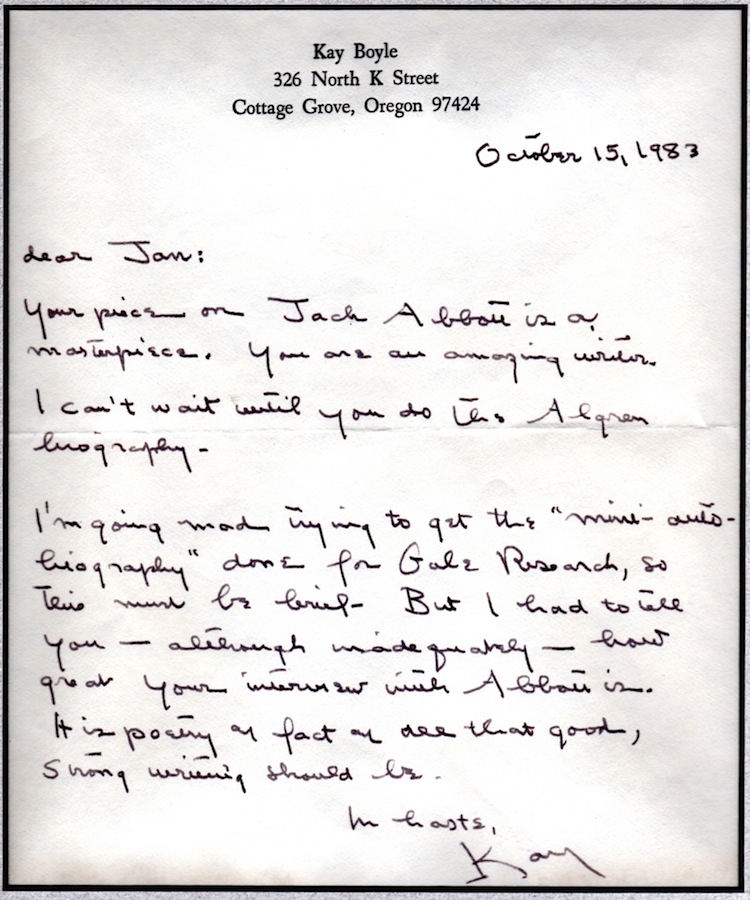 Kay Boyle
326 North K Street
Cottage Grove, Oregon 97424
October 15, 1983
dear Jan:
Your piece on Jack Abbott is a
masterpiece. You are an amazing writer.
I can't wait until you do the Algren
biography -
I'm going mad trying to get the "mini-auto-
biography" done for Gale Research, so
this must be brief - But I had to tell
you — although inadequately — how
great your interview with Abbott is.
It is poetry of fact of all that good,
strong writing should be.
In haste,
Kay